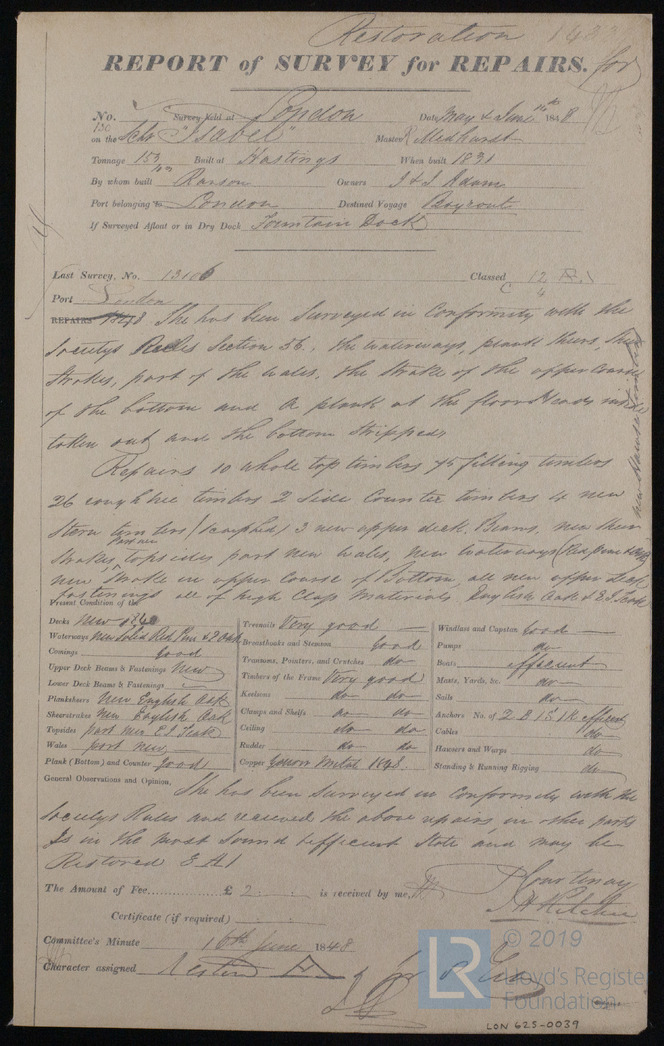 Restoration 1433
REPORT of SURVEY for REPAIRS. for
No. 130 Survey held at London Date May & June 10th 1848
on the Schr "Isabel" Master R Medhurst
Tonnage 153 Built at Hastings When built 1831
By whom built Ranson Owners J & J Adam
Port belonging to London Destined Voyage Beyrout
If Surveyed Afloat or in Dry Dock Fountain Dock
Last Survey, No. 13106 Classed 12 A.1
C 4
Port London
REPAIRS 1848 She has been Surveyed in Conformity with the
Societys Rules Section 56, the waterways, plank sheers, sheer
Strakes, part of the wales, the Strake of the upper Course
of the bottom and a plank at the floor Heads inside
taken out and the bottom Stripped,
Repairs 10 whole top timbers 75 filling timbers
26 tree timbers 2 Side Counter timbers 4 new
Stern timbers (scarphed) 3 new upper deck Beams, new Sheer
Strakes, part new topsides part new wales, new waterways (Red Pine &
new Strake in upper Course of Bottom, all new upper deck
fastenings all of high Class Materials English Oak & E I Teak
new Hawse timbers
Present Condition of the
Decks New 1840
Waterways new solid Red Pine & E Oak
Comings good
Upper Deck Beams & Fastenings New
Lower Deck Beams & Fastenings
Planksheers New English Oak
Sheerstrakes New English Oak
Topsides part new E I Teak
Wales part new
Plank (Bottom) and Counter good
Treenails Very good
Breasthooks and Stemson Good
Transoms, Pointers, and Crutches do
Timbers of the Frame Very good
Keelsons do do
Clamps and Shelfs do do
Ceiling do do
Rudder do do
Copper Yellow Metal 1848.
Windlass and Capstan Good
Pumps do
Boats efficient
Masts, Yards, &c. do
Sails do
Anchors No. of 2 B 1 S 1 K efficient
Cables do
Hawsers and Warps do
Standing & Running Rigging do
General Observations and Opinion, She has been Surveyed in Conformity with the
Societys Rules and received the above repairs, in other parts
Is in the most sound & efficient State and may be
Restored E A 1
The Amount of Fee............ £ 2 is received by me,
Courtenay
Certificate (if required)
Committee's Minute 16th June 1848
Character assigned Restored A
© 2019
LR Lloyd's Register
Foundation
LON 625-0039